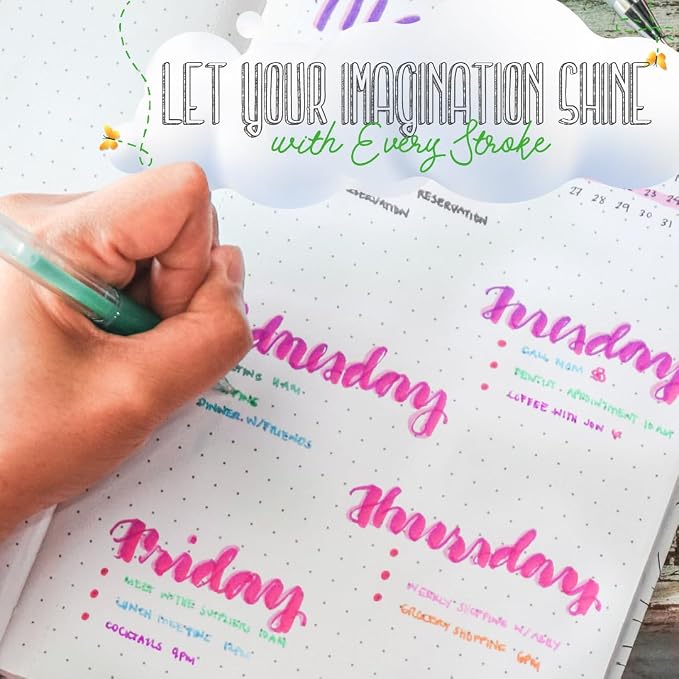 LET YOUR IMAGINATION SHINE
with Every Stroke
RESERVATION
23
27 28 29 30 31
Tuesday
CALL MOM
DENTIST APPOINTMENT 10AM
COFFEE WITH JON
dnesday
TING 11AM
TING
DINNER W/FRIENDS
Thursday
WEEKLY SHOPPING W/ABBY
GROCERY SHOPPING 6PM
Friday
MEET W/THE SUPPLIERS 10AM
LUNCH MEETING 12PM
COCKTAILS 9PM